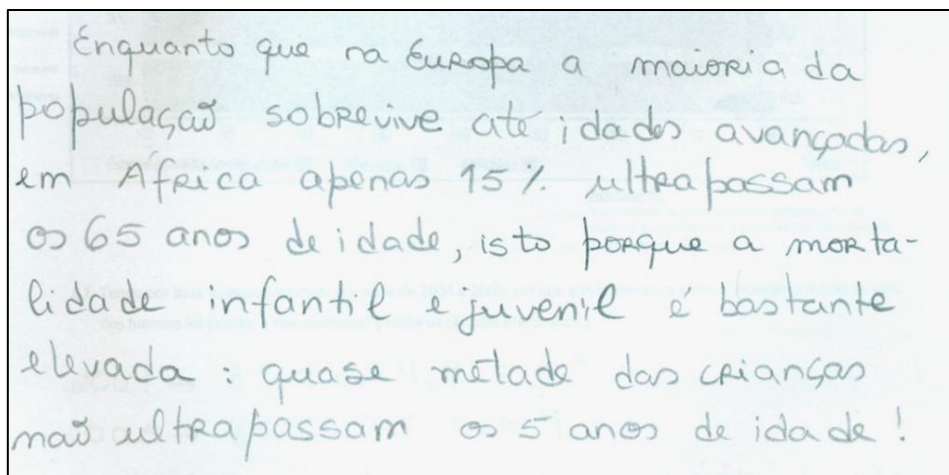 Enquanto que na Europa a maioria da
população sobrevive até idades avançadas,
em África apenas 15% ultrapassam
os 65 anos de idade, isto porque a morta-
lidade infantil e juvenil é bastante
elevada: quase metade das crianças
não ultrapassam os 5 anos de idade!